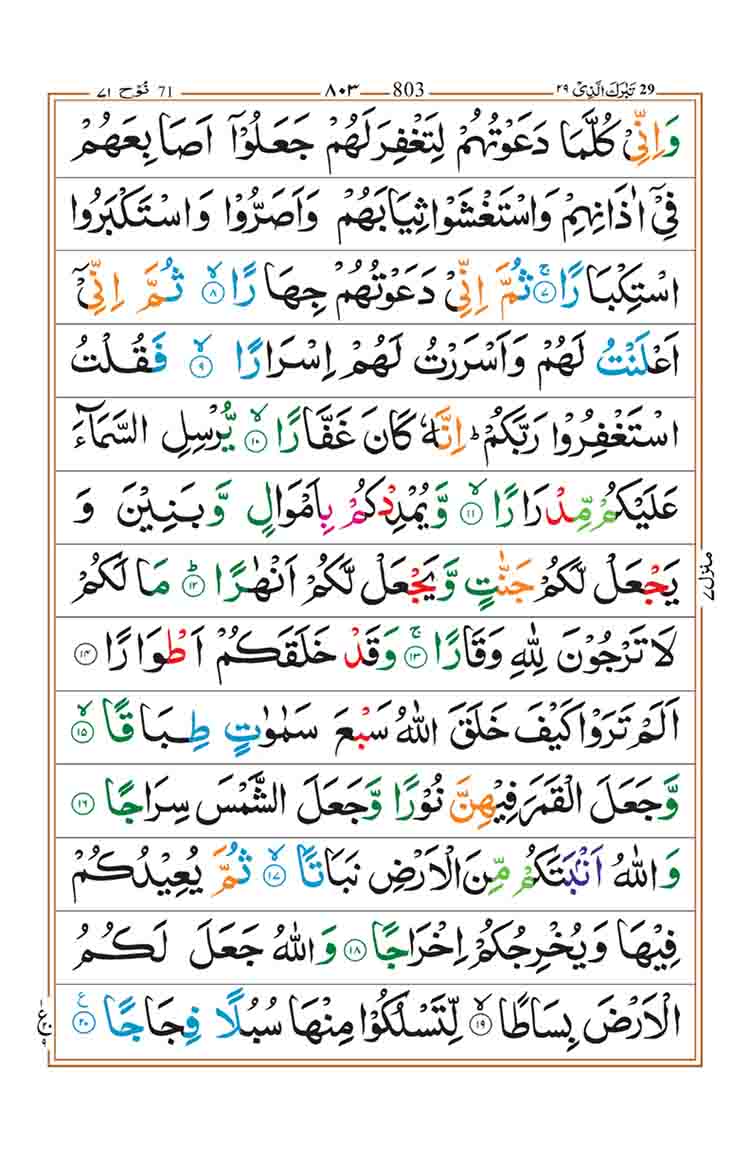 29 تَبٰرَكَ الَّذِیْ ۲۹ 803 ۸۰۳ 71 نُوْح ۷۱
وَ اِنِّیْ كُلَّمَا دَعَوْتُهُمْ لِتَغْفِرَ لَهُمْ جَعَلُوْۤا اَصَابِعَهُمْ
فِیْۤ اٰذَانِهِمْ وَ اسْتَغْشَوْا ثِیَابَهُمْ وَ اَصَرُّوْا وَ اسْتَكْبَرُوا
اسْتِكْبَارًا ۷ۚ ثُمَّ اِنِّیْ دَعَوْتُهُمْ جِهَارًا ۸ۙ ثُمَّ اِنِّیْۤ
اَعْلَنْتُ لَهُمْ وَ اَسْرَرْتُ لَهُمْ اِسْرَارًا ۹ۙ فَقُلْتُ
اسْتَغْفِرُوْا رَبَّكُمْ ؕ اِنَّهٗ كَانَ غَفَّارًا ۱۰ۙ یُّرْسِلِ السَّمَآءَ
عَلَیْكُمْ مِّدْرَارًا ۱۱ۙ وَّ یُمْدِدْكُمْ بِاَمْوَالٍ وَّ بَنِیْنَ وَ
یَجْعَلْ لَّكُمْ جَنّٰتٍ وَّ یَجْعَلْ لَّكُمْ اَنْهٰرًا ۱۲ؕ مَا لَكُمْ
لَا تَرْجُوْنَ لِلّٰهِ وَقَارًا ۱۳ۚ وَ قَدْ خَلَقَكُمْ اَطْوَارًا ۱۴
اَلَمْ تَرَوْا كَیْفَ خَلَقَ اللّٰهُ سَبْعَ سَمٰوٰتٍ طِبَاقًا ۱۵ۙ
وَّ جَعَلَ الْقَمَرَ فِیْهِنَّ نُوْرًا وَّ جَعَلَ الشَّمْسَ سِرَاجًا ۱۶
وَ اللّٰهُ اَنْۢبَتَكُمْ مِّنَ الْاَرْضِ نَبَاتًا ۱۷ۙ ثُمَّ یُعِیْدُكُمْ
فِیْهَا وَ یُخْرِجُكُمْ اِخْرَاجًا ۱۸ وَ اللّٰهُ جَعَلَ لَكُمُ
الْاَرْضَ بِسَاطًا ۱۹ۙ لِّتَسْلُكُوْا مِنْهَا سُبُلًا فِجَاجًا ۲۰ ع
منزل ۷